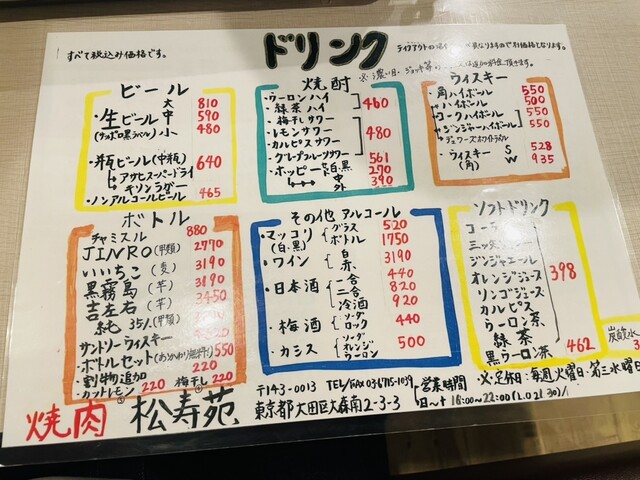 すべて税込み価格です。
ドリンク
ビール
生ビール 大 810
中 590
(サッポロ黒ラベル) 小 480
瓶ビール(中瓶) 640
アサヒスーパードライ
キリンラガー
ノンアルコールビール 465
焼酎
ウーロンハイ
緑茶ハイ 460
梅干しサワー
レモンサワー 480
カルピスサワー
グレープフルーツサワー 561
ホッピーセット白・黒 270
中
外 390
ウィスキー
角ハイボール 550
ハイボール 500
コークハイボール 550
ジンジャーハイボール 550
ウィスキー S 528
(角) W 935
ボトル
チャミスル 880
JINRO(甲類) 2770
いいちこ(麦) 3190
黒霧島(芋) 3190
吉左右(芋) 3450
純 35%(甲類)
サントリーウィスキー
ボトルセット(おかわり無料) 550
割物追加 220
カットレモン 220 梅干し 220
その他 アルコール
マッコリ グラス 520
(白・黒) ボトル 1750
ワイン 白 3190
赤
日本酒 一合 440
二合 820
冷酒 920
梅酒 ソーダ 440
ロック
カシス ソーダ 500
オレンジ
ウーロン
ソフトドリンク
コーラ
ジンジャエール
オレンジジュース 398
リンゴジュース
カルピス
ウーロン茶
緑茶
黒ウーロン茶 462
炭酸水
焼肉 松寿苑
〒143-0013 TEL/FAX 03-6715-1039
東京都大田区大森南2-3-3
営業時間
日〜土 18:00〜22:00(L.O 21:30)
※定休日:毎週火曜日・第三水曜日